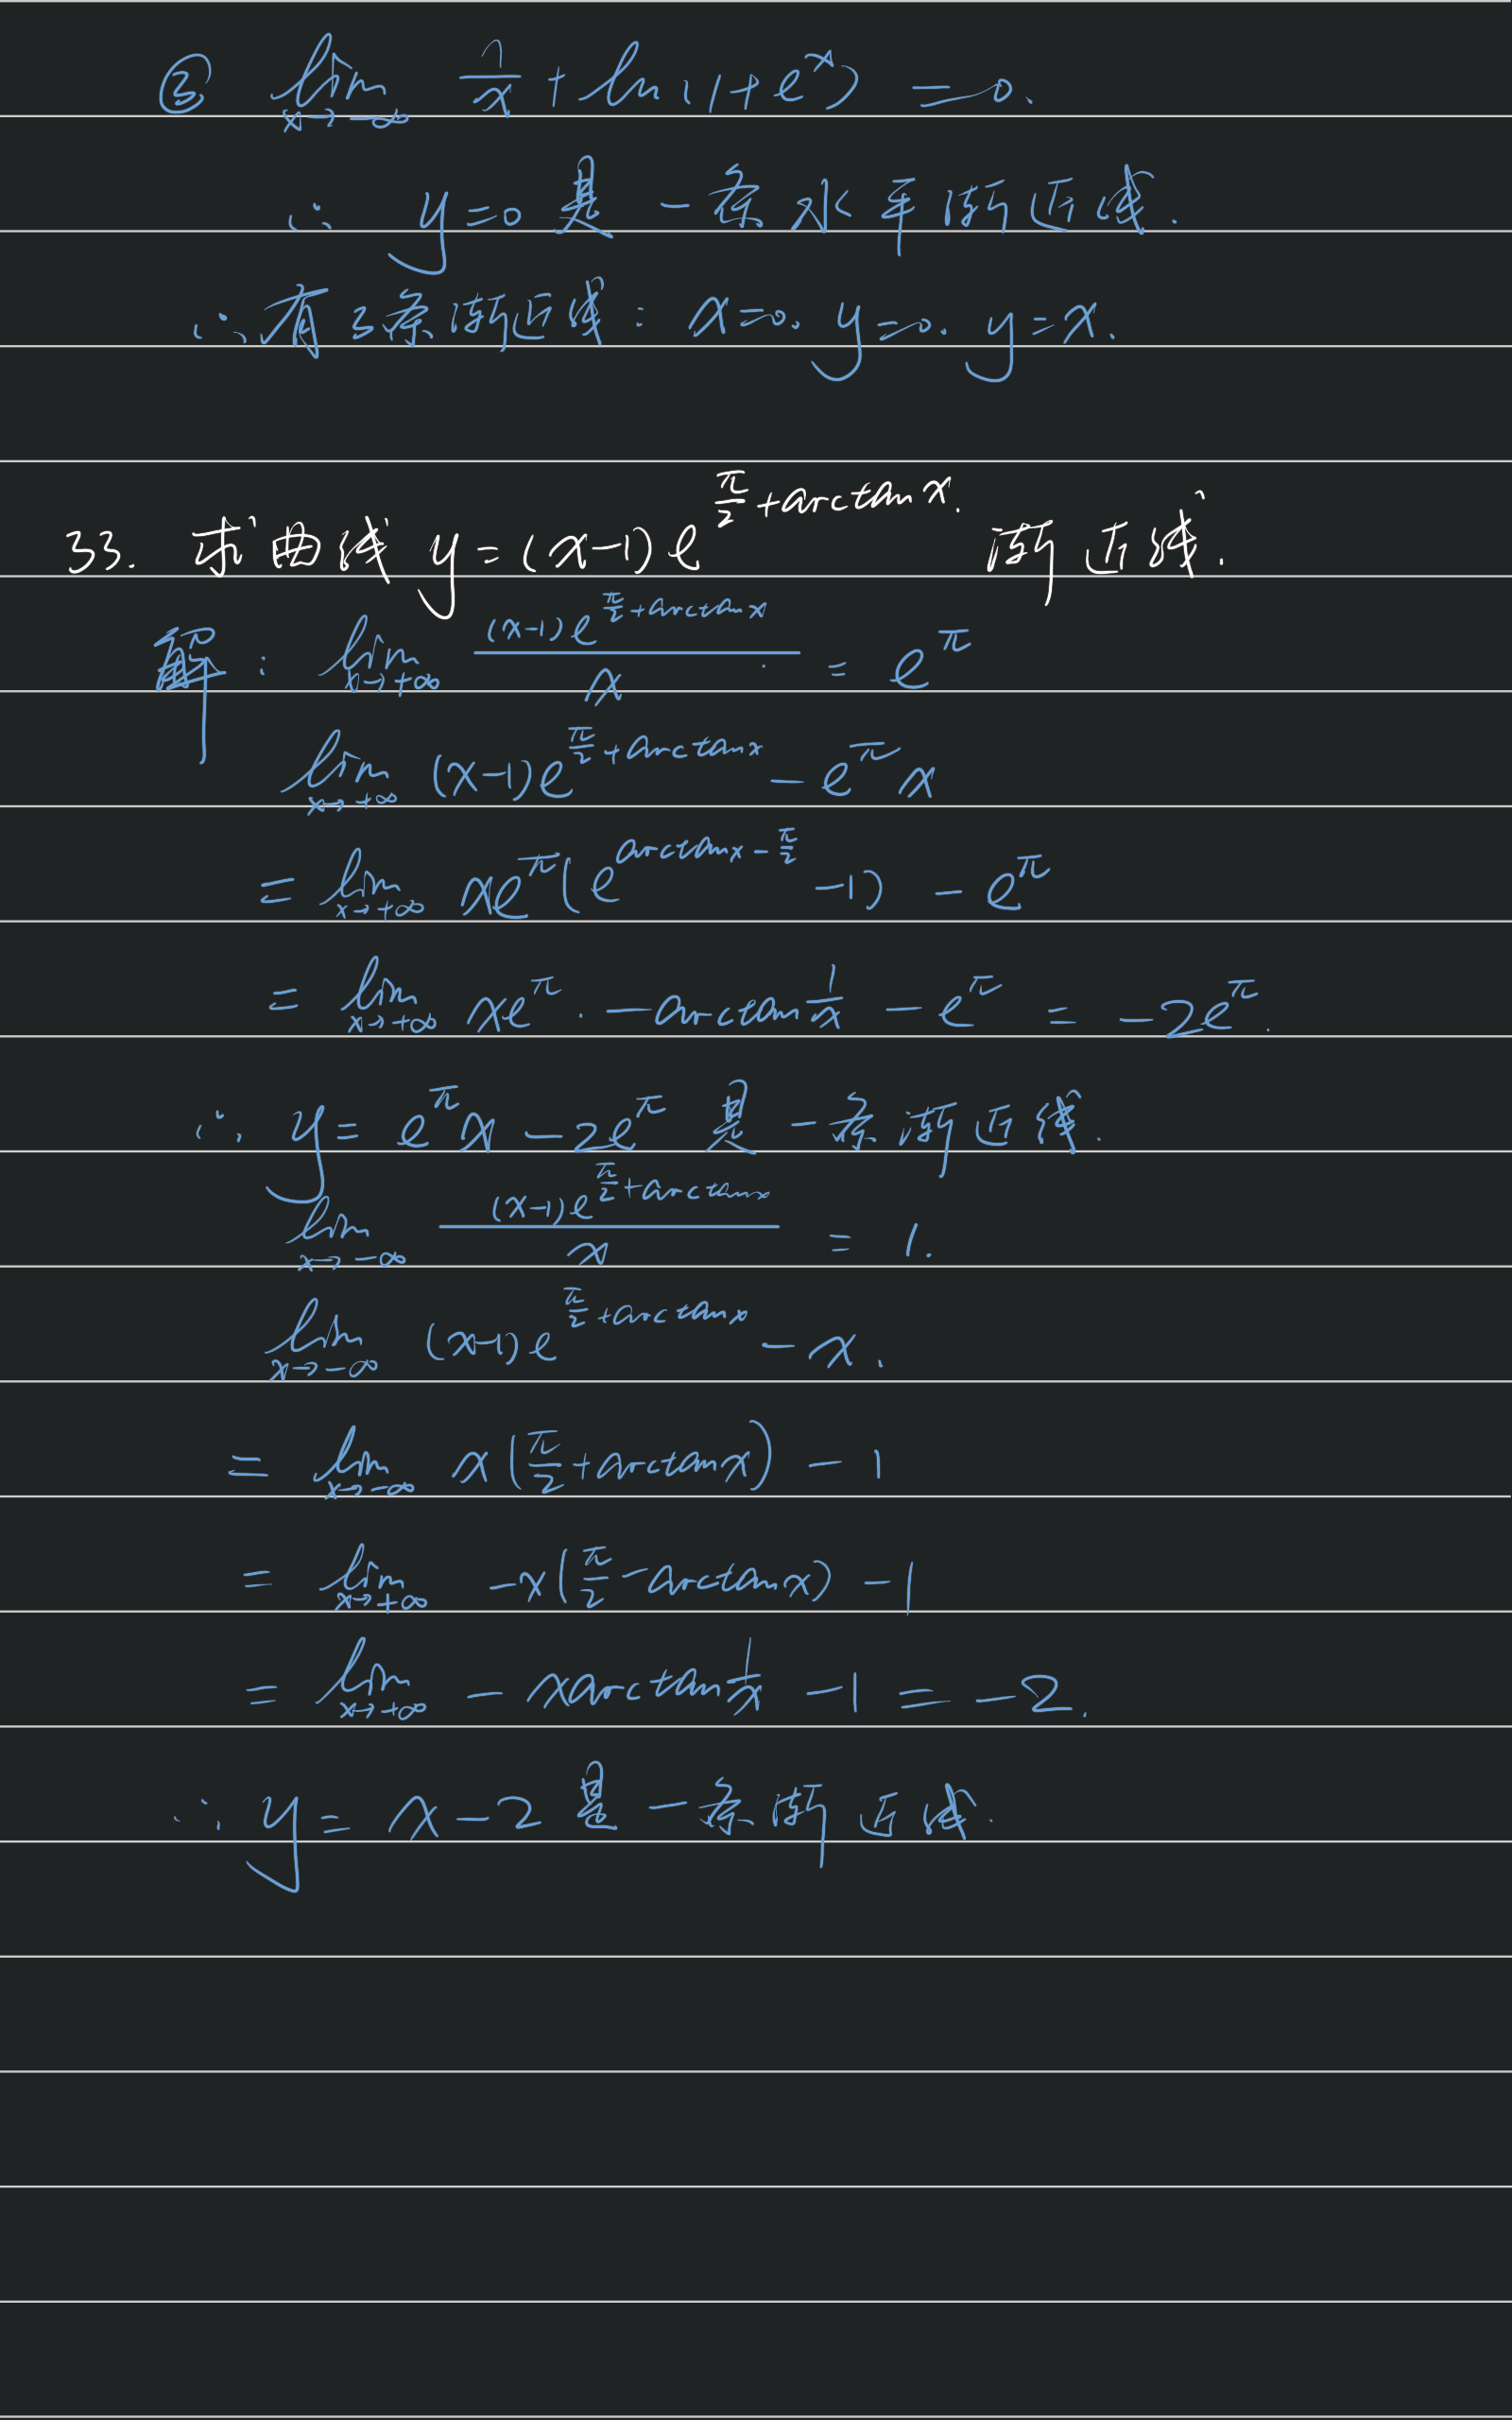 ③ lim x→-∞ 1/x + ln(1+e^x) = 0.
∴ y=0是一条水平渐近线.
∴有3条渐近线: x=0. y=0. y=x.
33. 求曲线 y=(x-1)e^(π/2+arctan x). 渐近线.
解: lim x→+∞ (x-1)e^(π/2+arctan x) / x = e^π
lim x→+∞ (x-1)e^(π/2+arctan x) - e^π x
= lim x→+∞ xe^π(e^(arctan x - π/2) -1) - e^π
= lim x→+∞ xe^π · -arctan 1/x - e^π = -2e^π.
∴ y= e^π x - 2e^π 是一条渐近线.
lim x→-∞ (x-1)e^(π/2+arctan x) / x = 1.
lim x→-∞ (x-1)e^(π/2+arctan x) - x.
= lim x→-∞ x(π/2+arctan x) - 1
= lim x→+∞ -x(π/2-arctan x) - 1
= lim x→+∞ - x arctan 1/x - 1 = -2.
∴ y= x-2是一条渐近线.